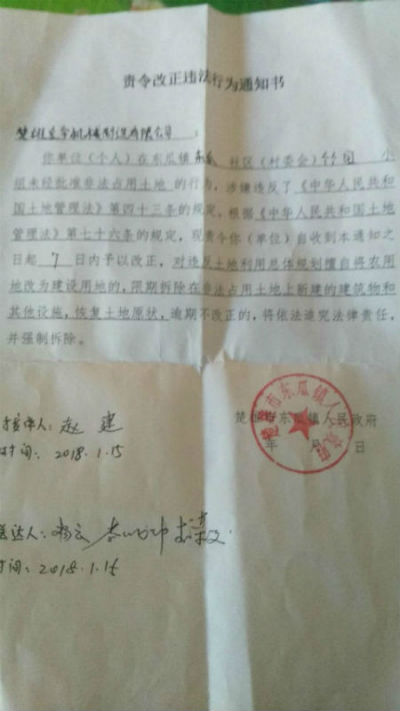 责令改正违法行为通知书
楚雄 机械制造有限公司：
你单位（个人）在东瓜镇东瓜社区（村委会） 小
组未经批准非法占用土地的行为，涉嫌违反了《中华人民共和
国土地管理法》第四十三条的规定，根据《中华人民共和国土地
管理法》第七十六条的规定，现责令你（单位）自收到本通知之
日起 7 日内予以改正，对违反土地利用总体规划擅自将农用
地改为建设用地的，限期拆除在非法占用土地上新建的建筑物和
其他设施，恢复土地原状，逾期不改正的，将依法追究法律责任，
并强制拆除。
楚雄市东瓜镇人民政府
年 月 日
人：赵 建
时间：2018.1.15
送达人：杨云
时间：2018.1.15